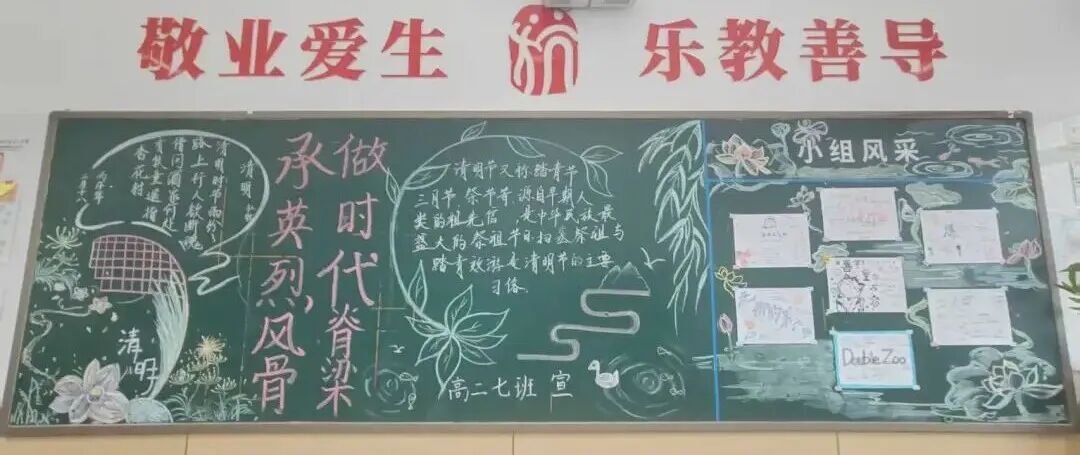 敬业爱生 乐教善导
清明
清明时节雨纷纷
路上行人欲断魂
借问酒家何处
有牧童遥指
杏花村
清明
承英烈,风骨
做时代脊梁
清明节又称踏青节
三月节,祭节等.源自早期人
类的祖先信 ,是中华民族最
盛大的祭祖节日.扫墓祭祖与
踏青效游是清明节的主要
习俗.
高二七班 宣
小组风采
Double Zoo